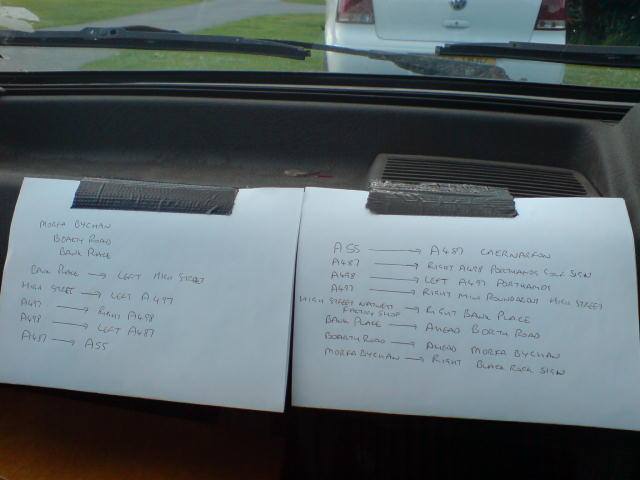 MORFA BYCHAN
BOARTH ROAD
BANK PLACE
BANK PLACE → LEFT HIGH STREET
HIGH STREET → LEFT A497
A497 → RIGHT A498
A498 → LEFT A487
A487 → A55
A55 → A487 CAERNARFON
A487 → RIGHT A498 PORTHMADS GOLF SIGN
A498 → LEFT A497 PORTHMADS
A497 → RIGHT MINI ROUNDABOUT HIGH STREET
HIGH STREET → RIGHT BANK PLACE
FACTORY SHOP
BANK PLACE → AHEAD BORTH ROAD
BOARTH ROAD → AHEAD MORFA BYCHAN
MORFA BYCHAN → RIGHT BLACK ROCK SIGN